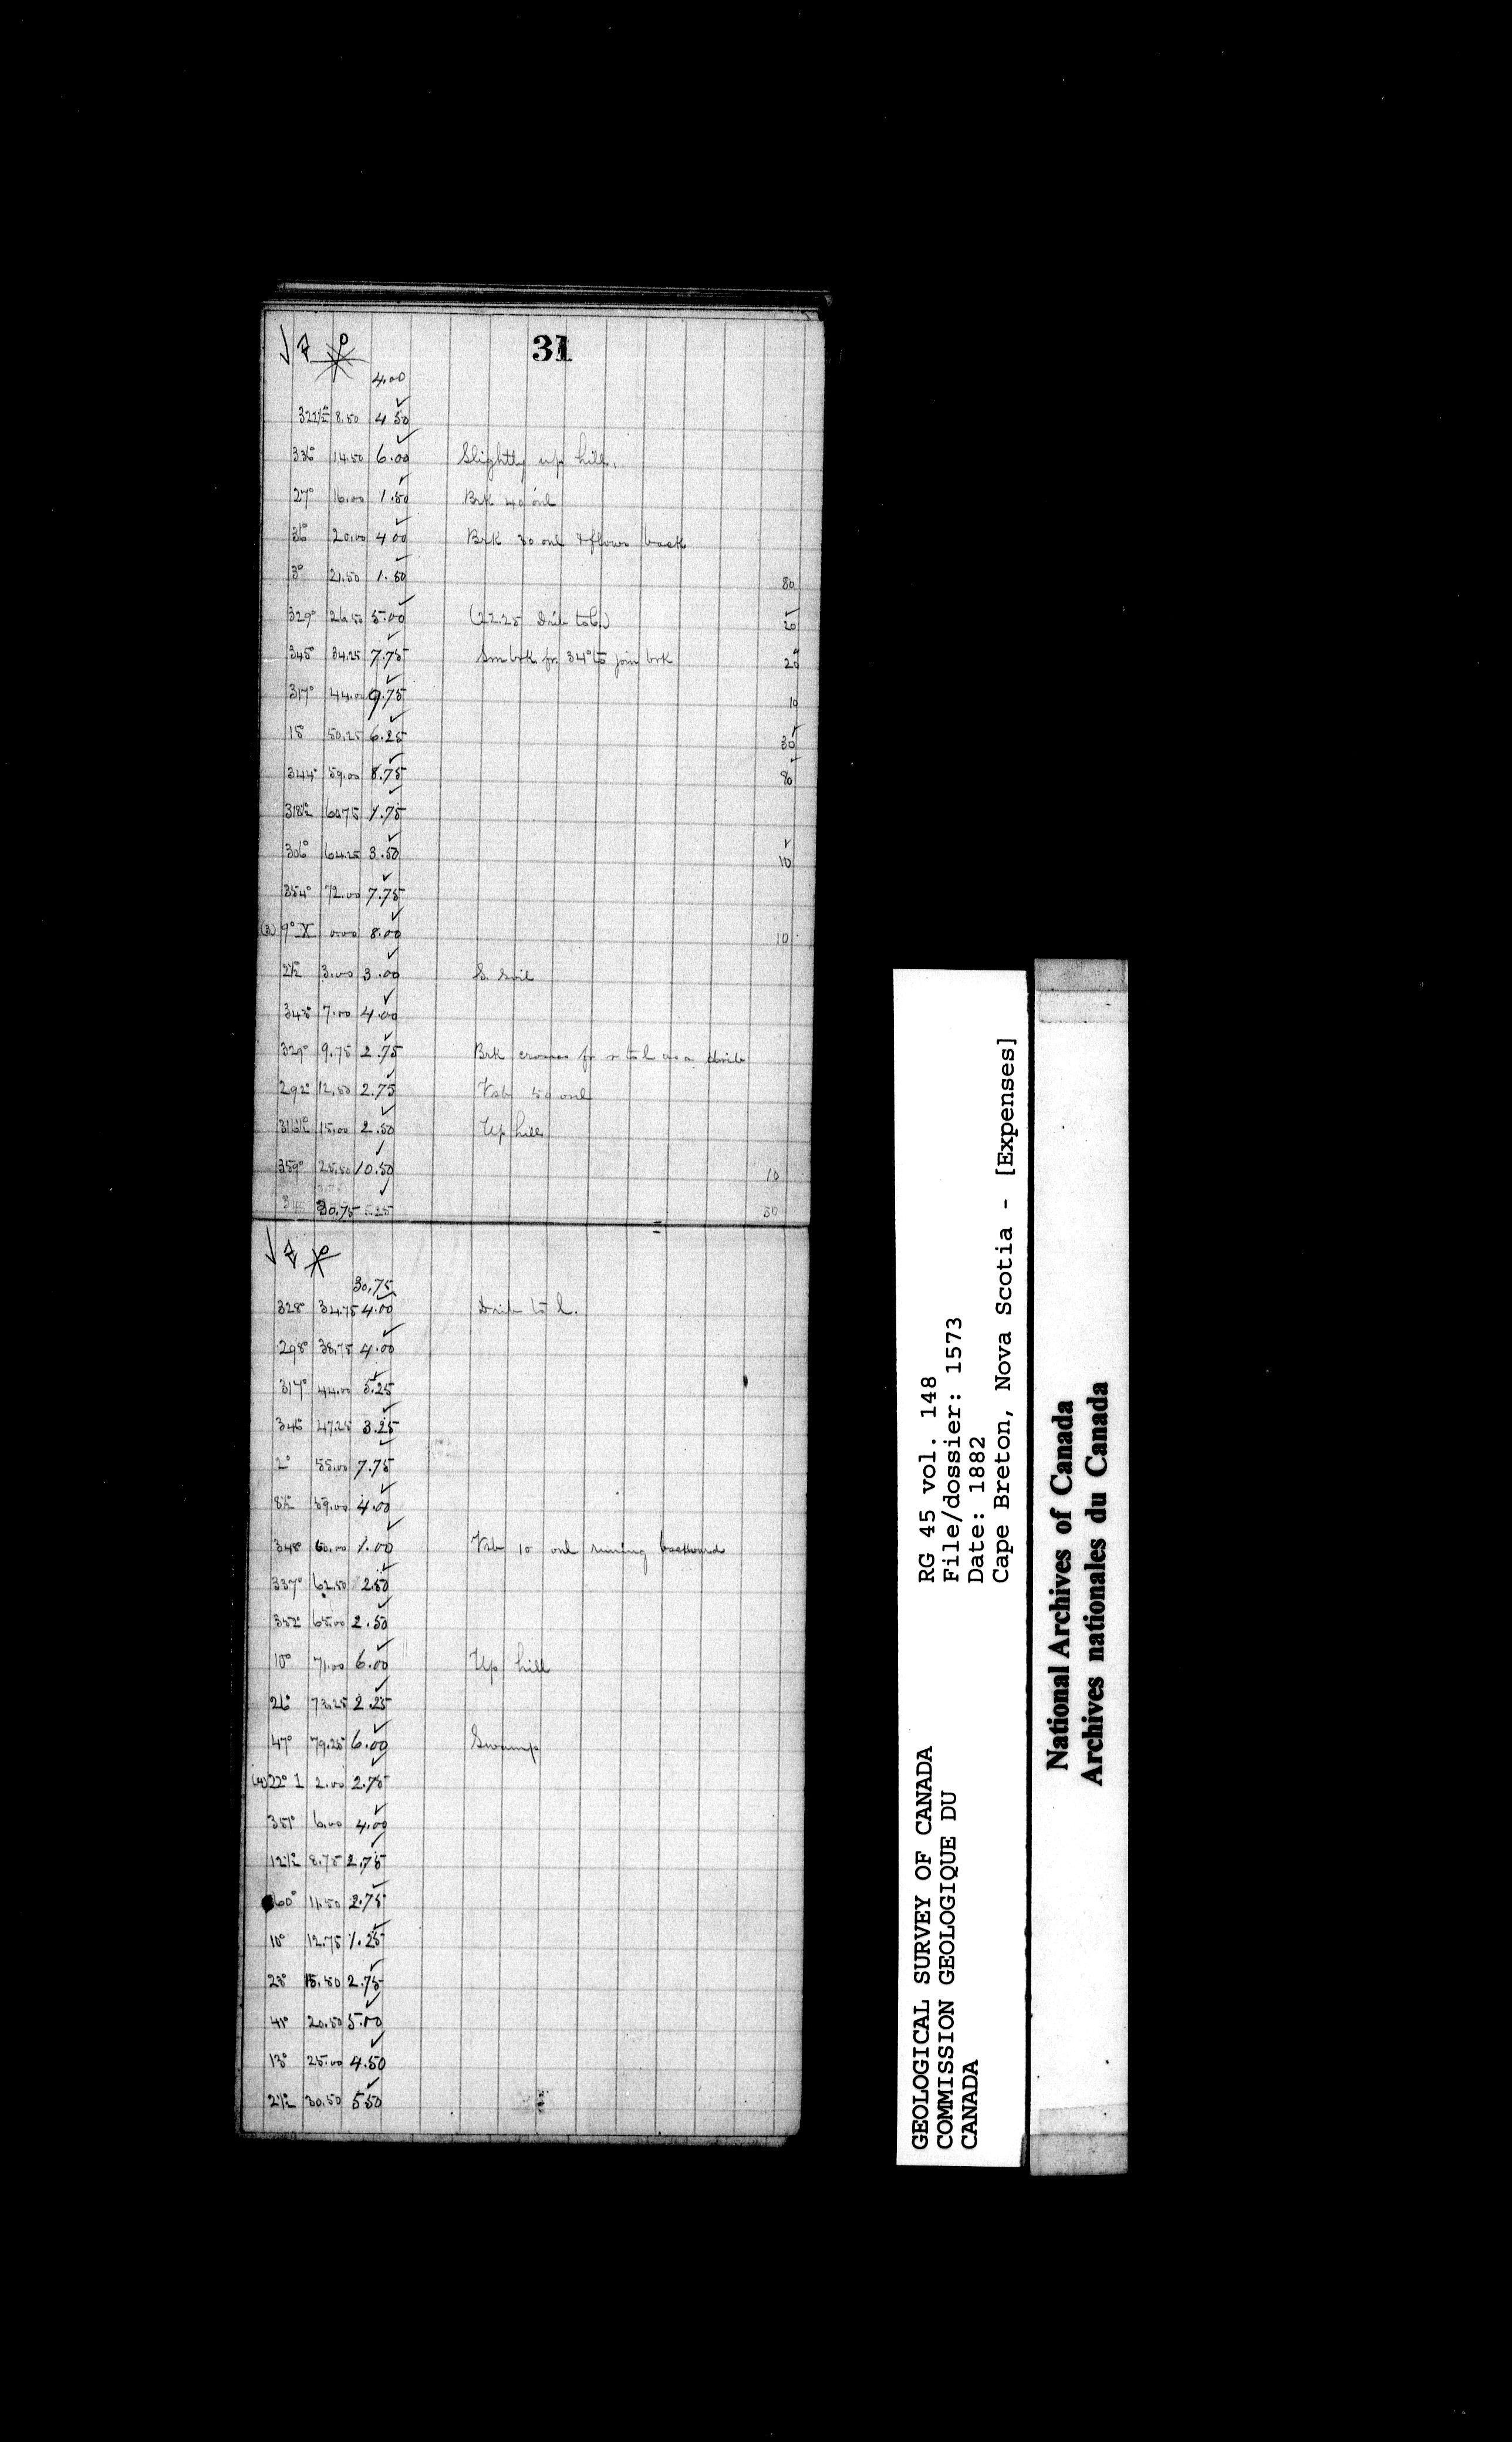 31
4.00
322½° 8.50 4.50
336° 14.50 6.00 Slightly up hill.
27° 16.00 1.50 Brk 40 onl
36° 20.00 4.00 Brk 30 onl & flows back
3° 21.50 1.50 80
329° 26.50 5.00 (22.25 Drib to l.) 20
345° 34.25 7.75 Sm brk fr. 34° to join brk 20
317° 44.00 9.75 10
18° 50.25 6.25 30
344° 59.00 8.75 80
318½ 60.75 1.75
306° 64.25 3.50 10
354° 72.00 7.75
(3) 9° X 0.00 8.00 10
2½ 3.00 3.00 S. soil
343° 7.00 4.00
329° 9.75 2.75 Brk crosses fr r to l as a drib
292° 12.50 2.75 50 onl
316½° 15.00 2.50 Up hill
359° 25.50 10.50 10
30.75 5.25 30
30.75
328° 34.75 4.00 Drib to l.
298° 38.75 4.00
317° 44.00 5.25
346° 47.25 3.25
2° 55.00 7.75
8½ 59.00 4.00
348° 60.00 1.00 10 onl runing backward
337° 62.50 2.50
352° 65.00 2.50
10° 71.00 6.00 Up hill
26° 73.25 2.25
47° 79.25 6.00 Swamp
(4) 22° 1 2.00 2.75
351° 6.00 4.00
12½ 8.75 2.75
60° 11.50 2.75
10° 12.75 1.25
28° 15.50 2.75
41° 20.50 5.00
13° 25.00 4.50
2½ 30.50 5.50
GEOLOGICAL SURVEY OF CANADA
COMMISSION GEOLOGIQUE DU
CANADA
RG 45 vol. 148
File/dossier: 1573
Date: 1882
Cape Breton, Nova Scotia - [Expenses]
National Archives of Canada
Archives nationales du Canada